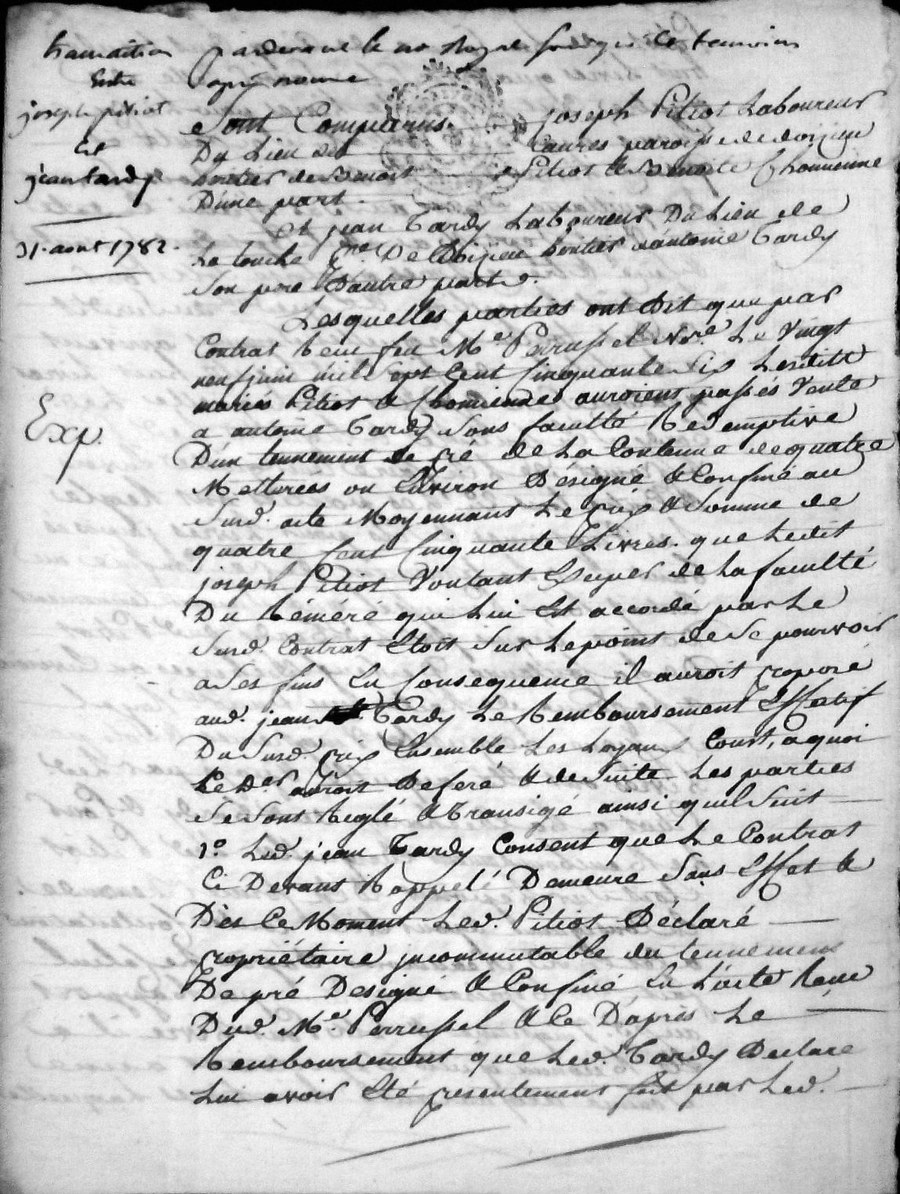 transaction
Entre
joseph pitiot
Et
jean tardy
31. aout 1782.
Exp.
pardevant le no. Royal soussigné Et temoins
apres nommé
Sont Comparus joseph Pitiot Laboureur
Du Lieu des paroisse de doizieu
heritier de Benoit Pitiot & Benoite Chomienne
D'une part.
Et jean Tardy Laboureur Du Lieu de
La touche pse De Doizieu heritier d'antoine Tardy
son pere D'autre part.
Lesquelles parties ont Dit que par
Contrat Recu feu Me. Perrussel Nre. Le Vingt
neuf juin mil sept Cent Cinquante Six Lesditt
mariés Pitiot & Chomienne auroient passés Vente
a antoine Tardy sous faculté Redemptive
D'un tennement de pré de La Contenue de quatre
Metterées ou Environ Désigné & Confiné au
Susd. acte Moyennant Le prix & Somme de
quatre Cent Cinquante Livres. que Ledit
joseph Pitiot Voulant User de La faculté
Du Reméré qui Lui Est accordé par Le
Susd. Contrat Etoit Sur Le point de Se pourvoir
a Ses fins En Consequence il auroit proposé
aud. jean Tardy Le Remboursement Effectif
Du Susd. prix Ensemble Les Loyaux Cousts, a quoi
Le Der auroit Deferé & de Suite Les parties
Se Sont Reglé & transigé ainsi quil Suit
1°. Led. jean Tardy Consent que Le Contrat
Ci Devant Rappelé Demeure Sans Effet &
Dès Ce Moment Led. Pitiot Déclaré
propriétaire jncommutable du tennement
De pré Designé & Confiné En L'acte Recu
Dud. Me. Perrussel & Ce D'après Le
Remboursement que Led. Tardy Declare
Lui avoir Eté presentement fait par Led.